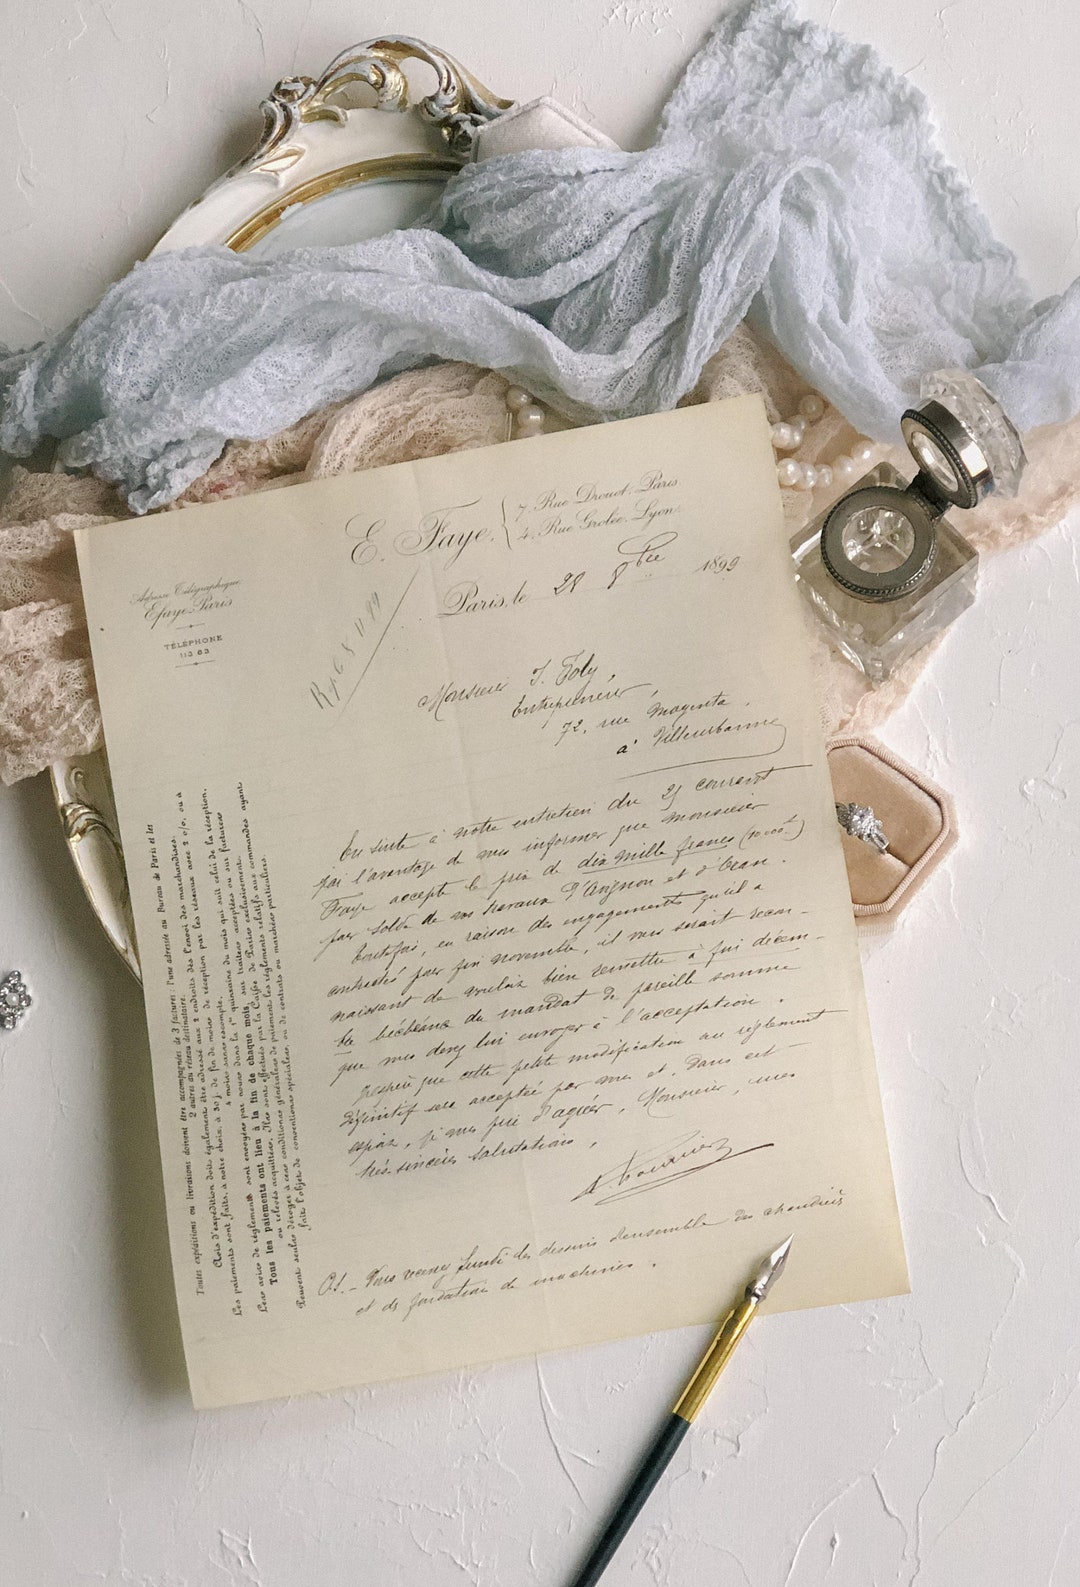 E. Faye.
7, Rue Drouot. Paris.
4, Rue Grolée. Lyon.
Adresse Télégraphique
Efaye-Paris
TÉLÉPHONE
113 63
Paris, le 28 8bre 1899
Monsieur J. Foly,
Entrepreneur,
72, rue Magenta,
à Villeurbanne
En suite à notre entretien du 25 courant
j'ai l'avantage de vous informer que Monsieur
Faye accepte le prix de dix mille francs (10.000f)
pour solde de vos travaux d'Avignon et d'Oran.
Toutefois, en raison des engagements qu'il a
contractés pour fin novembre, il vous serait recon-
naissant de vouloir bien remettre à fin décem-
bre l'échéance du mandat de pareille somme
que vous devez lui envoyer à l'acceptation.
J'espère que cette petite modification au règlement
définitif sera acceptée par vous et, dans cet
espoir, je vous prie d'agréer, Monsieur, mes
très sincères salutations.
P.S. _ Vous recevrez lundi les dessins d'ensemble des chaudières
et de fondation de machines.
Toutes expéditions ou livraisons doivent être accompagnées de 3 factures: l'une adressée au Bureau de Paris et les
2 autres au réseau destinataire.
Avis d'expédition doit également être adressé aux 2 endroits dès l'envoi des marchandises.
Les paiements sont faits, à notre choix, à 30 j. de fin de mois de réception par les réseaux avec 2 o/o, ou à
4 mois sans escompte.
Les avis de règlement sont envoyés par nous dans la 1re quinzaine du mois qui suit celui de la réception.
Tous les paiements ont lieu à la fin de chaque mois, sur traites acceptées ou sur factures
ou relevés acquittés. Ils sont effectués par la Caisse de Paris exclusivement.
Peuvent seules déroger à ces conditions générales de paiements les règlements relatifs aux commandes ayant
fait l'objet de conventions spéciales, ou de contrats ou marchés particuliers.